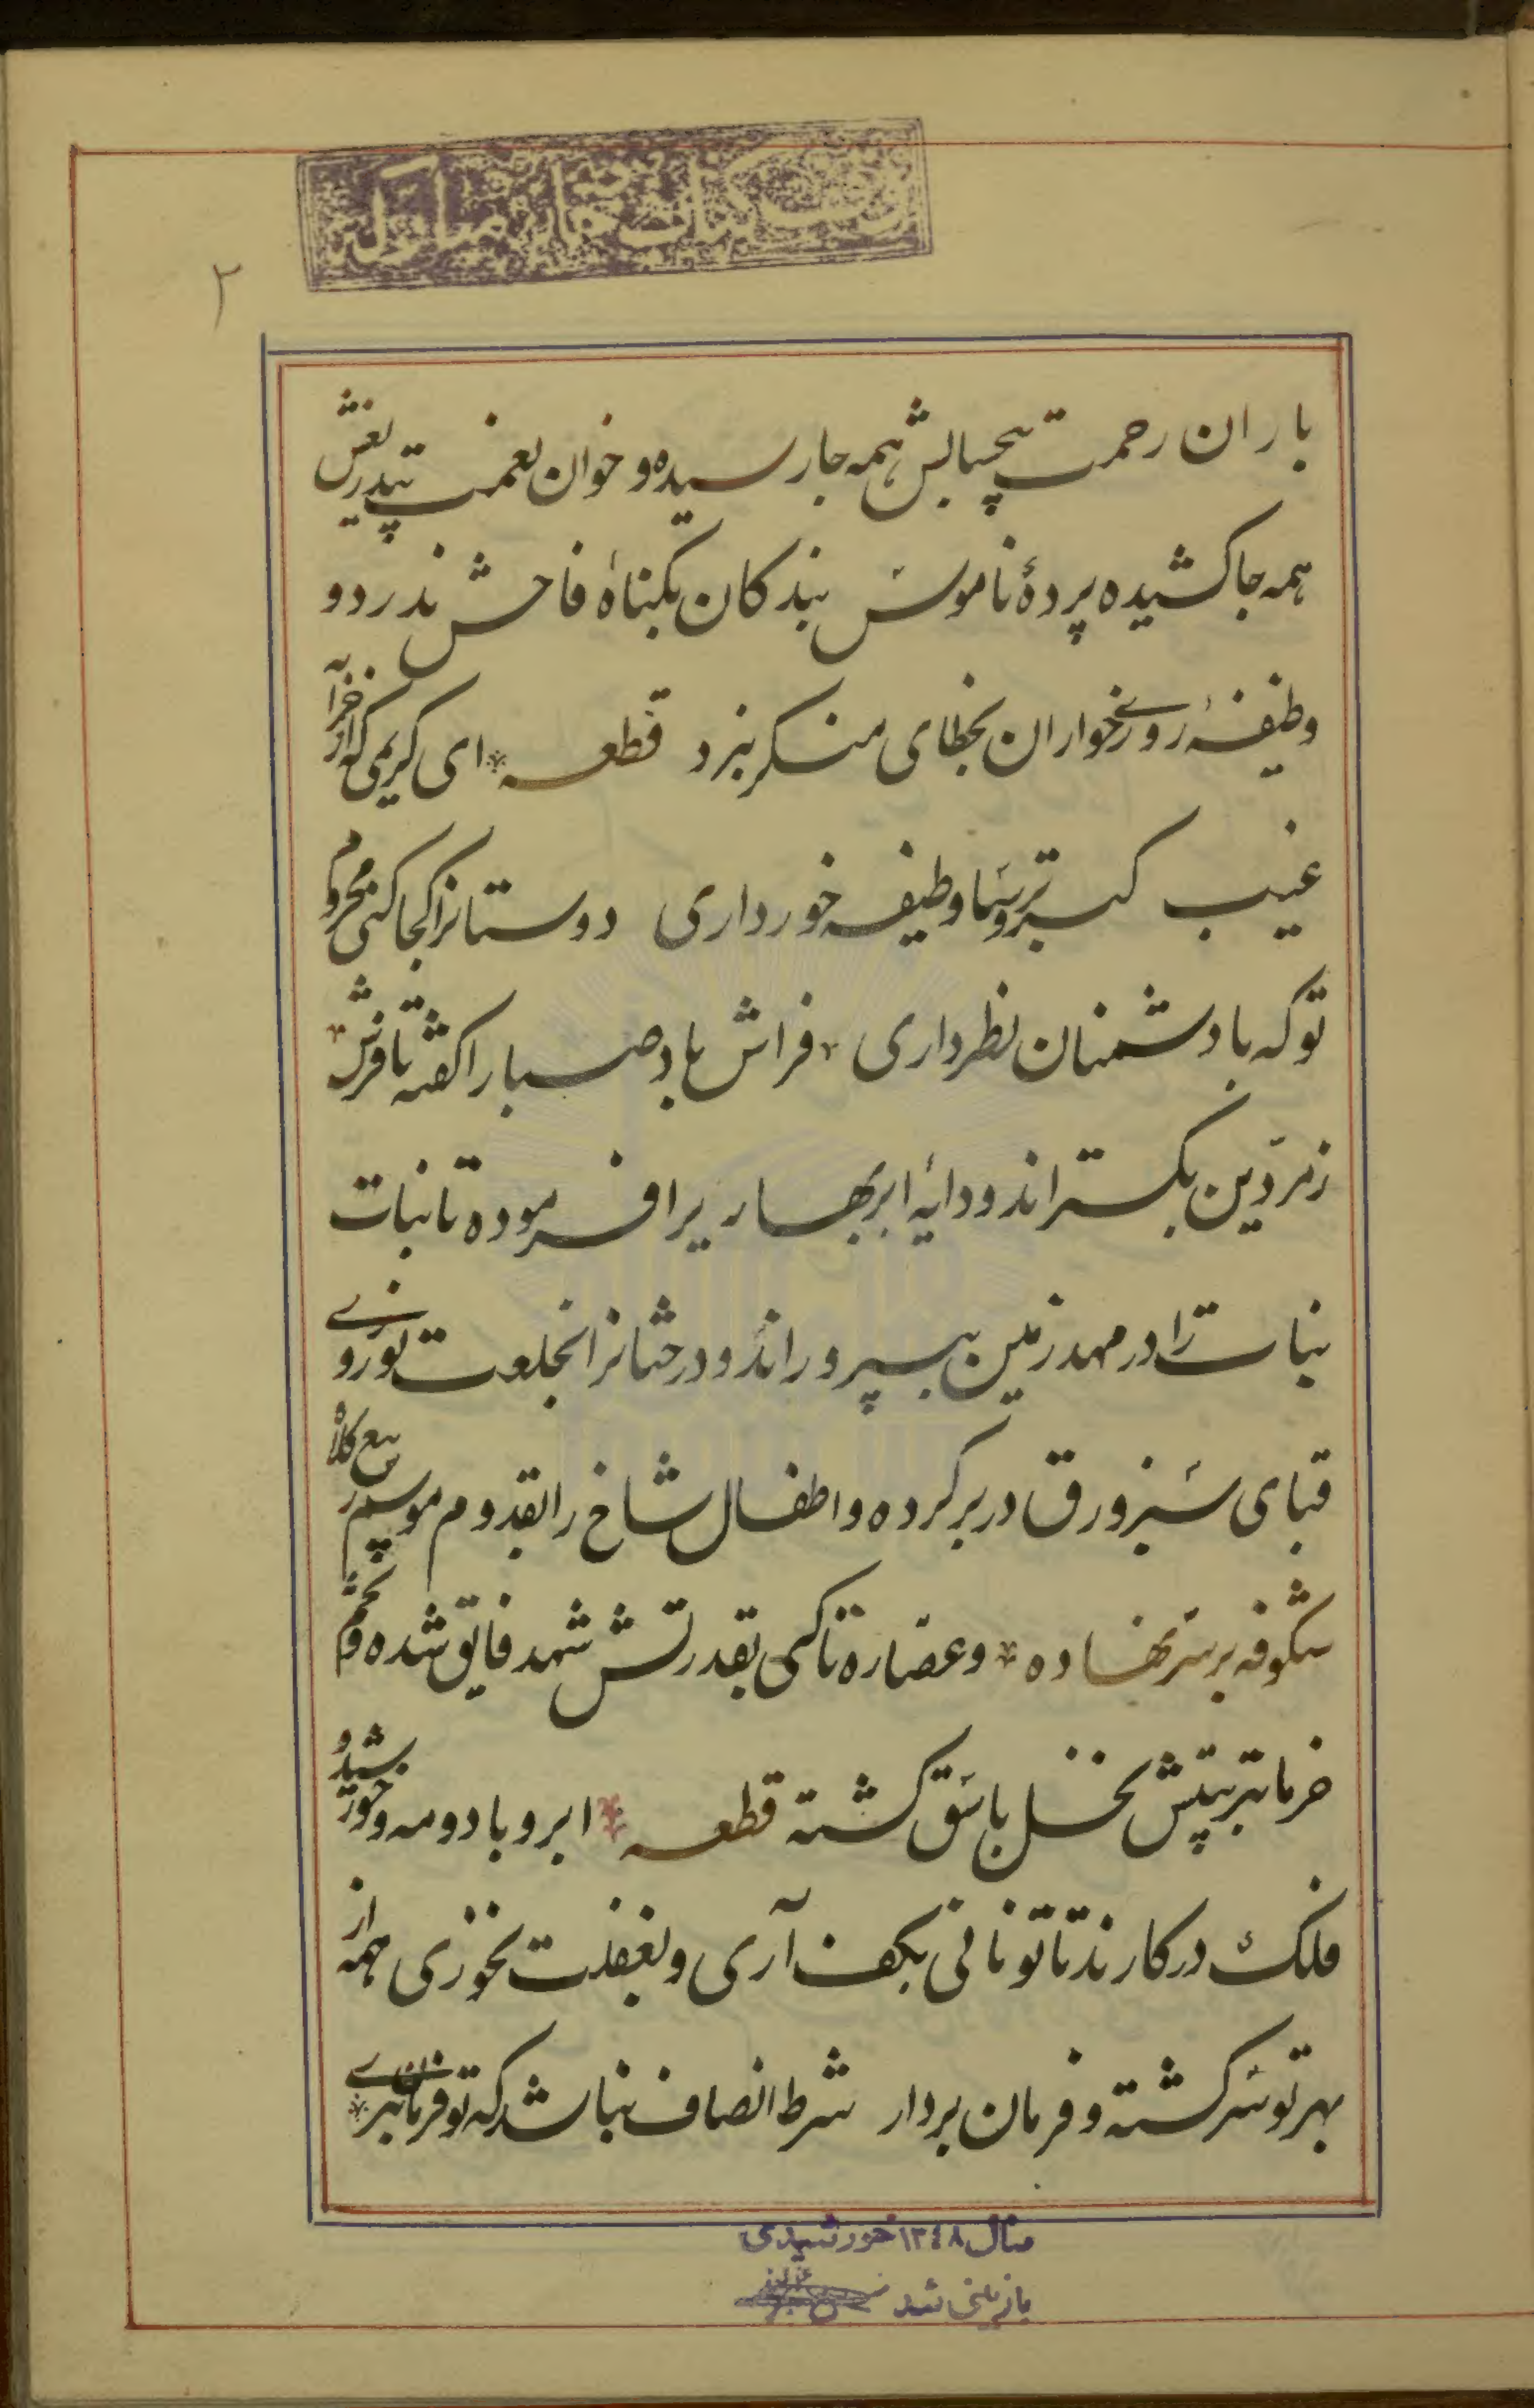 ۲
باران رحمت بیحسابش همه جا رسیده و خوان نعمت بیدریغش
همه جا کشیده پردهٔ ناموس بندکان بکناه فاحش ندرد و
وظیفهٔ روزی خواران بخطای منکر نبرد قطعه ای کریمی که از خزانهٔ
غیب کبر و ترسا وظیفه خور داری دوستانرا کجا کنی محروم
تو که با دشمنان نظر داری فراش باد صبا را کفته تا فرش
زمردین بکستراند و دایهٔ ابر بهاریرا فرموده تا نبات
نباترا در مهد زمین بپروراند و درختانرا بخلعت نوروزی
قبای سبز ورق در بر کرده و اطفال شاخ را بقدوم موسم ربیع کلاه
شکوفه بر سر نهاده و عصارهٔ تاکی بقدرتش شهد فایق شده و تخم
خرما بتربیتش نخل باسق کشته قطعه ابر و باد و مه و خورشید و
فلک در کارند تا تو نانی بکف آری و بغفلت نخوری همه از
بهر تو سرکشته و فرمان بردار شرط انصاف نباشد که تو فرمان نبری
سال ۱۳٤۸ خورشیدی
بازبینی شد